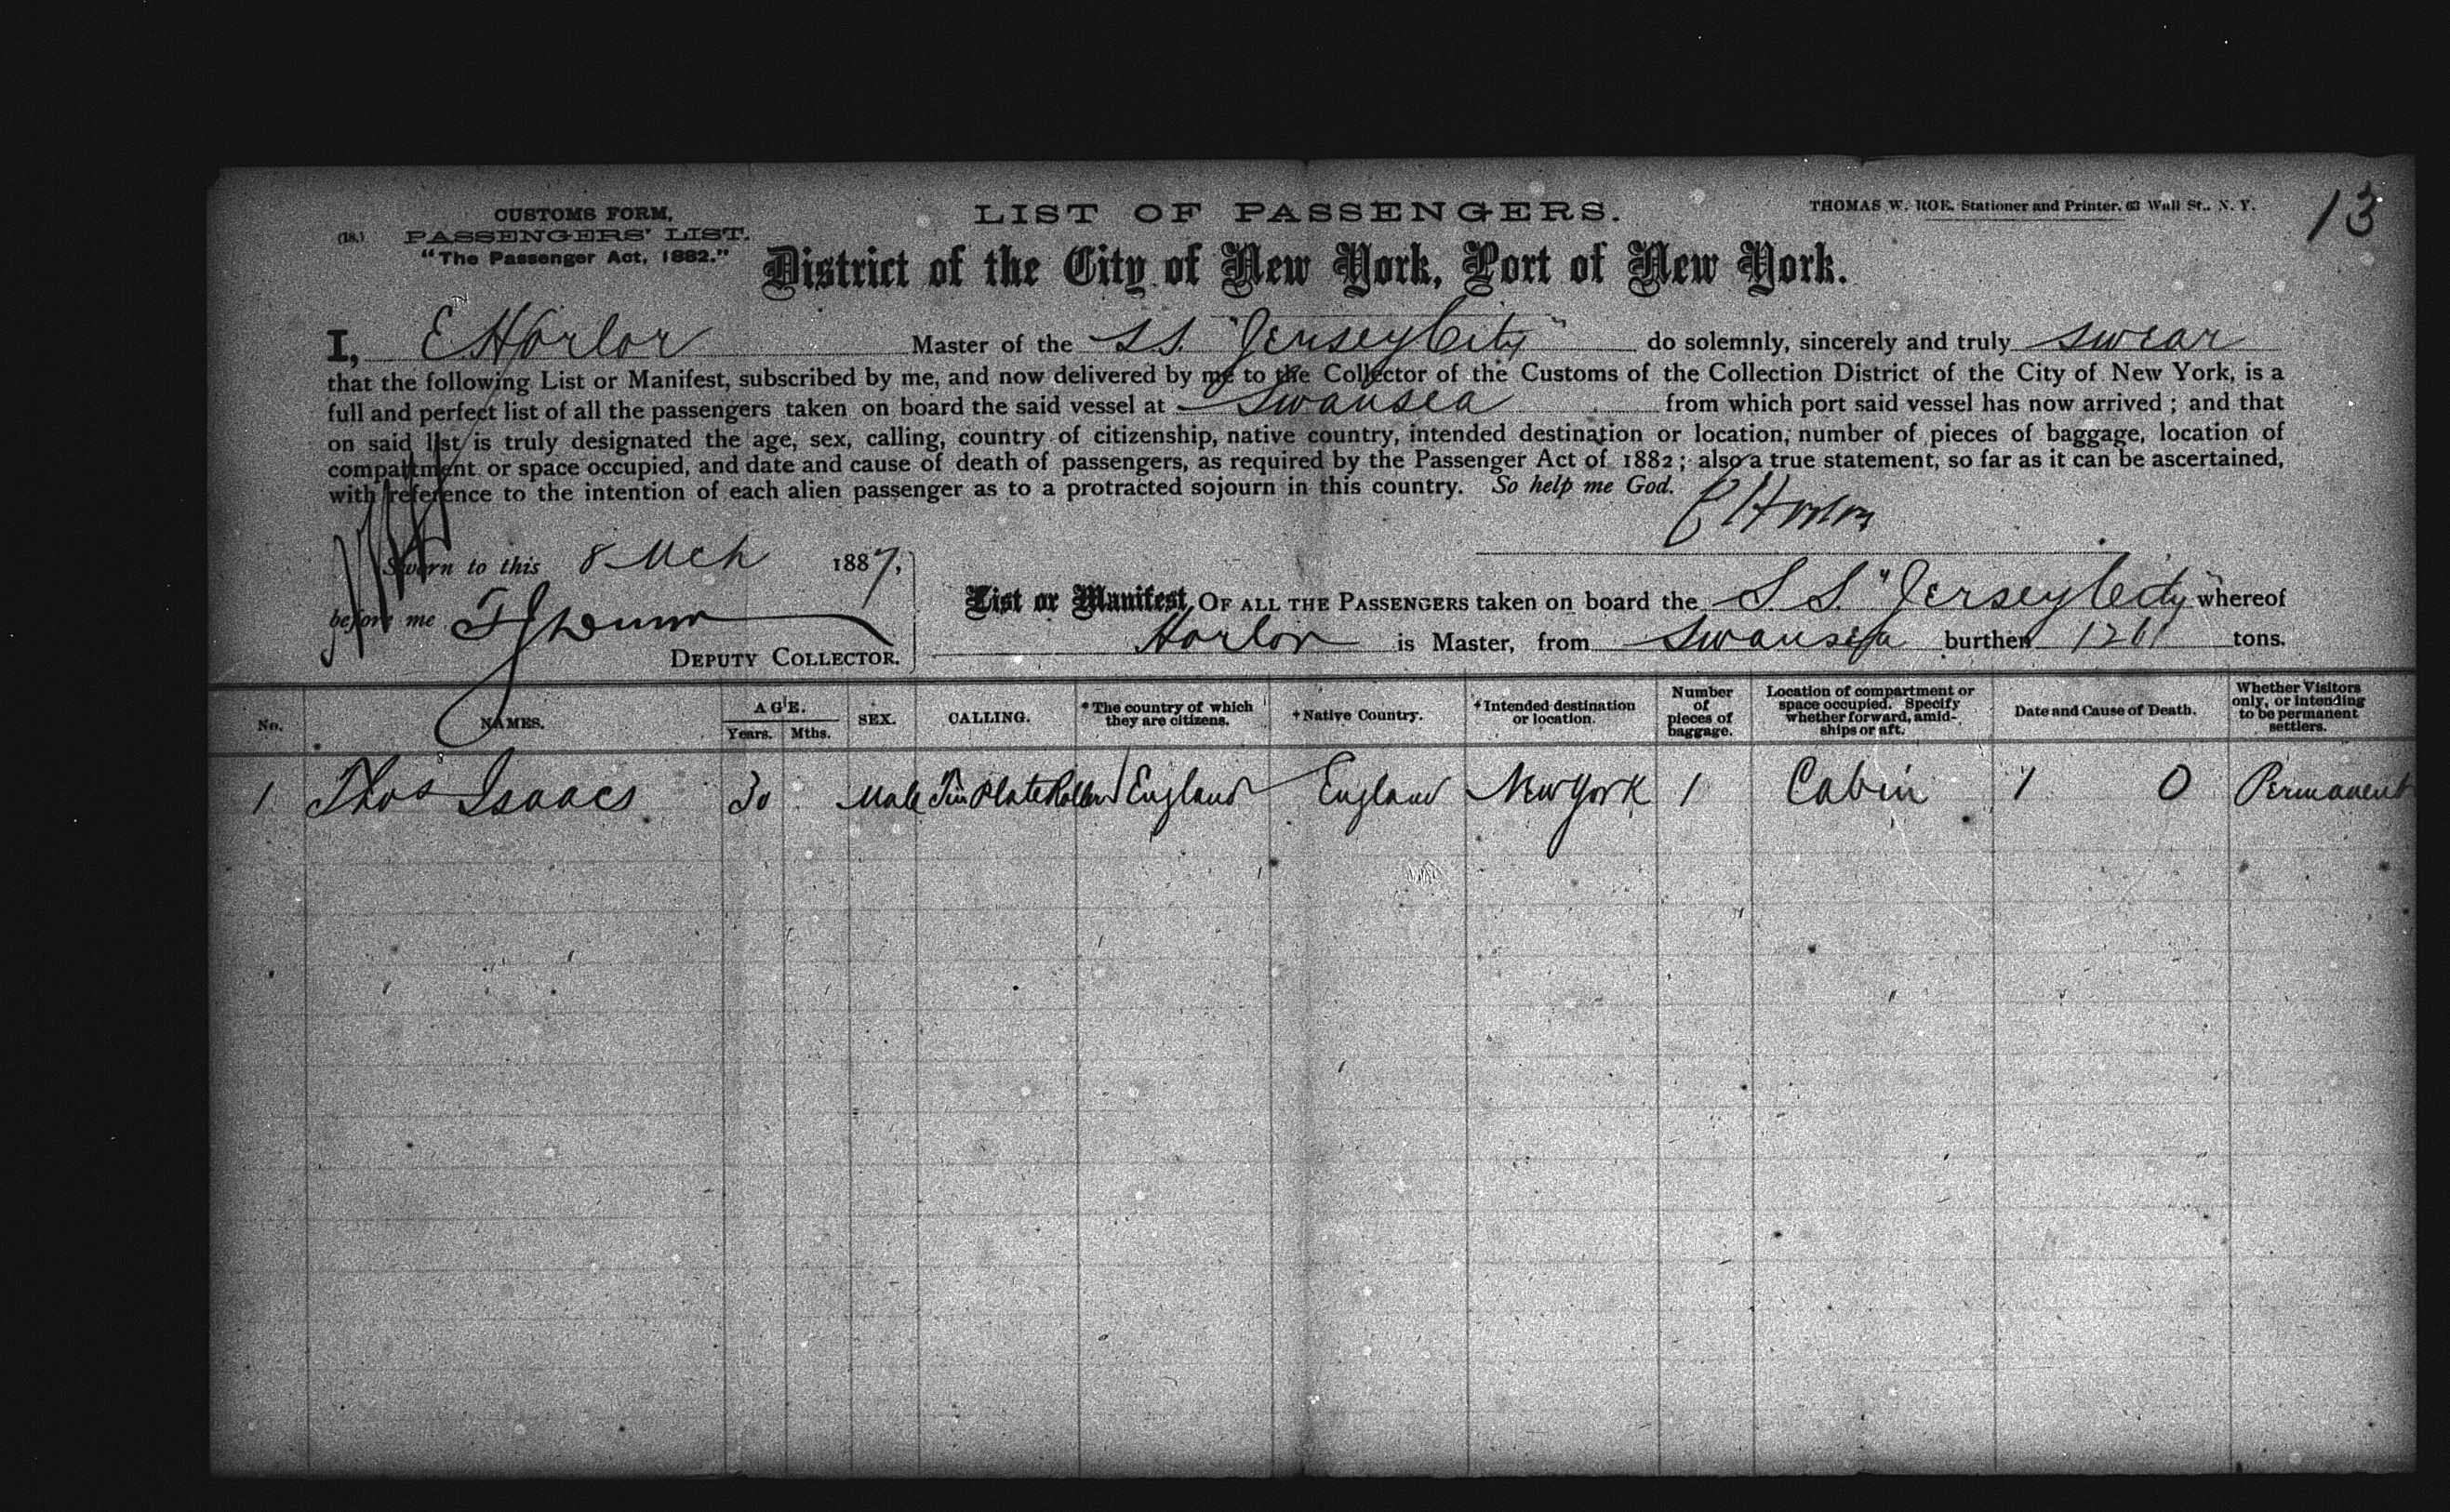 CUSTOMS FORM,
(18.) PASSENGERS' LIST.
"The Passenger Act, 1882."
LIST OF PASSENGERS.
THOMAS W. ROE. Stationer and Printer, 63 Wall St., N. Y.
13
District of the City of New York, Port of New York.
I, E Horlor Master of the S.S. "Jersey City" do solemnly, sincerely and truly swear
that the following List or Manifest, subscribed by me, and now delivered by me to the Collector of the Customs of the Collection District of the City of New York, is a
full and perfect list of all the passengers taken on board the said vessel at Swansea from which port said vessel has now arrived; and that
on said list is truly designated the age, sex, calling, country of citizenship, native country, intended destination or location, number of pieces of baggage, location of
compartment or space occupied, and date and cause of death of passengers, as required by the Passenger Act of 1882; also a true statement, so far as it can be ascertained,
with reference to the intention of each alien passenger as to a protracted sojourn in this country. So help me God.
E Horlor
Sworn to this 8 Mch 1887,
before me
DEPUTY COLLECTOR.
List or Manifest OF ALL THE PASSENGERS taken on board the S.S. "Jersey City" whereof
Horlor is Master, from Swansea burthen 1261 tons.
No. NAMES. AGE. Years. Mths. SEX. CALLING. *The country of which they are citizens. †Native Country. ‡Intended destination or location. Number of pieces of baggage. Location of compartment or space occupied. Specify whether forward, amidships or aft. Date and Cause of Death. Whether Visitors only, or intending to be permanent settlers.
1 Thos Isaacs 30 Male Tin Plate Roller England England New York 1 Cabin 1 0 Permanent